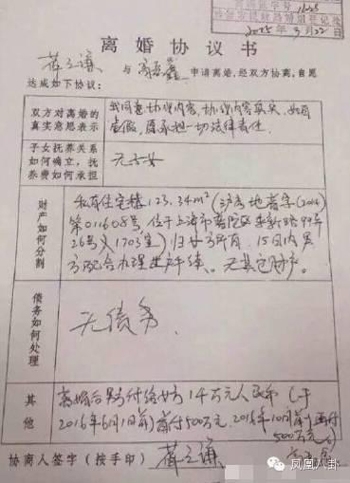 2015年9月22日
离婚协议书
薛之谦 与 高磊鑫 申请离婚,经双方协商,自愿
达成如下协议:
双方对离婚的
真实意思表示
我同意协议内容,协议内容真实,如有
虚假,愿承担一切法律责任
子女抚养关系
如何确立,抚
养费如何承担
无子女
财产如何分割
私有住宅楼123.34m²(沪房地普字(2014)
第011608号,位于上海市普陀区
26号 1703室)归女方所有,15日内男
方配合办理过户手续。无其它财产。
债务如何处理
无债务.
其他
离婚后男方付给女方 万元人民币(于
2016年6月1日前)首付500万元,2016年10月 前再付
500万元
协商人签字(按手印)
薛之谦
凤凰八卦